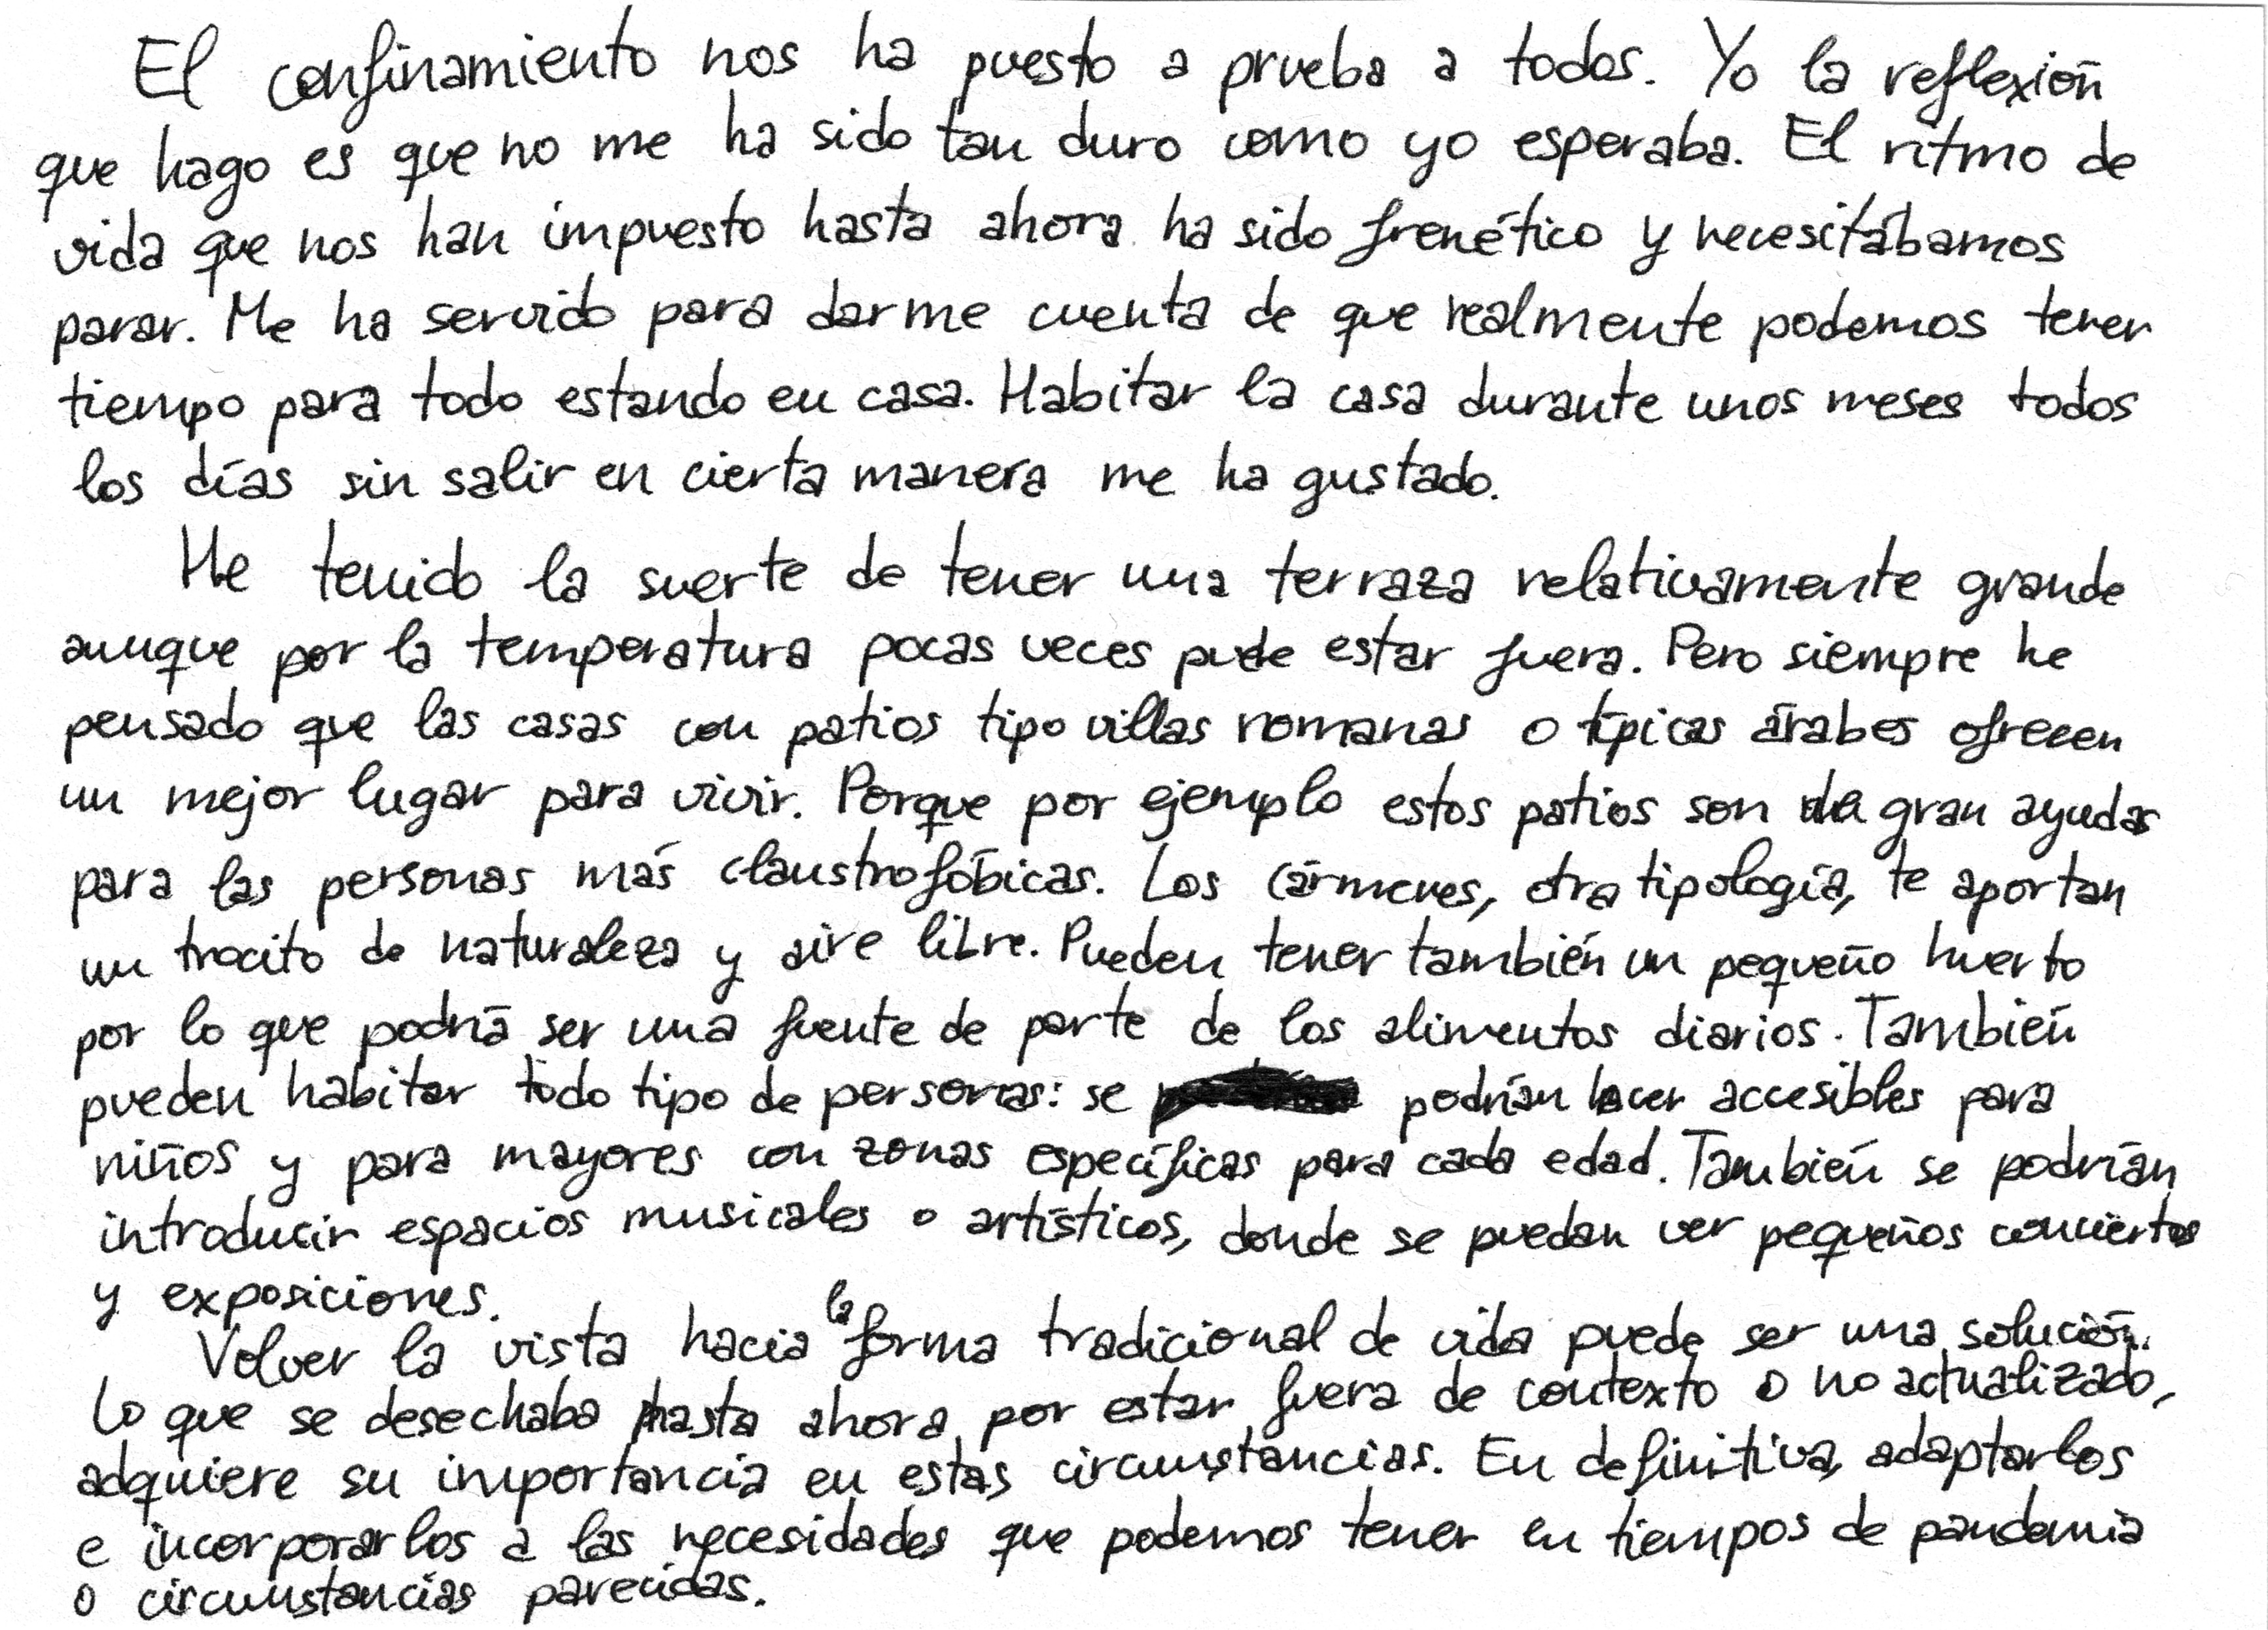 El confinamiento nos ha puesto a prueba a todos. Yo la reflexión
que hago es que no me ha sido tan duro como yo esperaba. El ritmo de
vida que nos han impuesto hasta ahora ha sido frenético y necesitábamos
parar. Me ha servido para darme cuenta de que realmente podemos tener
tiempo para todo estando en casa. Habitar la casa durante unos meses todos
los días sin salir en cierta manera me ha gustado.
He tenido la suerte de tener una terraza relativamente grande
aunque por la temperatura pocas veces pude estar fuera. Pero siempre he
pensado que las casas con patios tipo villas romanas o típicas árabes ofrecen
un mejor lugar para vivir. Porque por ejemplo estos patios son de gran ayudas
para las personas más claustrofóbicas. Los cármenes, otra tipología, te aportan
un trocito de naturaleza y aire libre. Pueden tener también un pequeño huerto
por lo que podría ser una fuente de parte de los alimentos diarios. También
pueden habitar todo tipo de personas: se podrían hacer accesibles para
niños y para mayores con zonas específicas para cada edad. También se podrían
introducir espacios musicales o artísticos, donde se puedan ver pequeños conciertos
y exposiciones.
Volver la vista hacia la forma tradicional de vida puede ser una solución.
Lo que se desechaba hasta ahora por estar fuera de contexto o no actualizado,
adquiere su importancia en estas circumstancias. En definitiva, adaptarlos
e incorporarlos a las necesidades que podemos tener en tiempos de pandemia
o circumstancias parecidas.